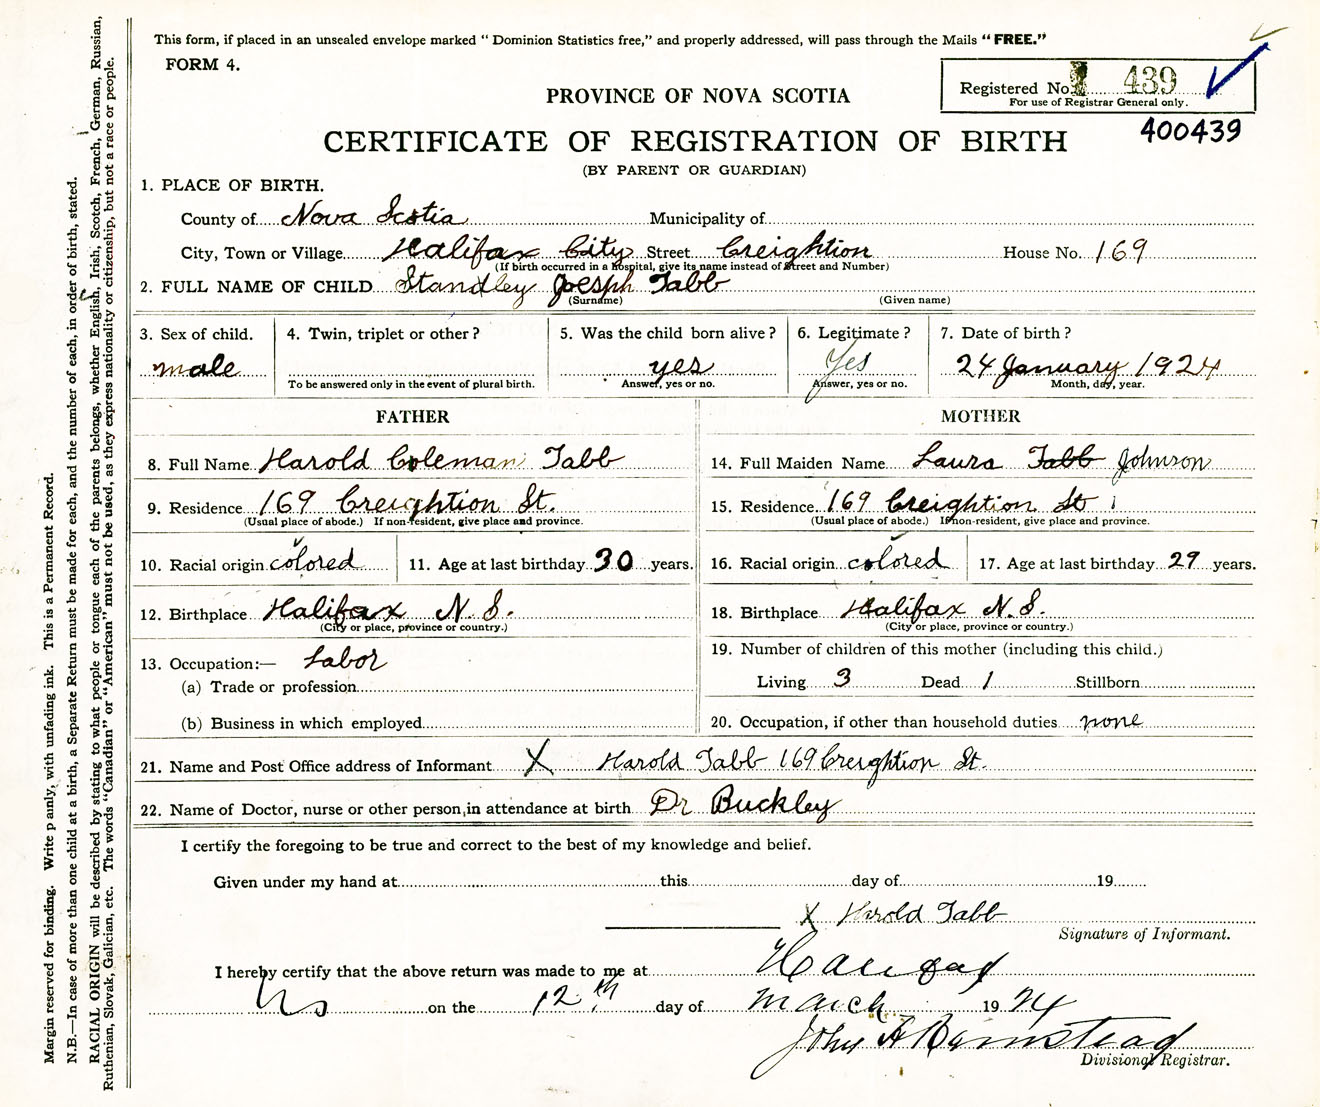 This form, if placed in an unsealed envelope marked “ Dominion Statistics free,” and properly addressed, will pass through the Mails “ FREE.”
FORM 4.
Registered No. 439
For use of Registrar General only.
400439
PROVINCE OF NOVA SCOTIA
CERTIFICATE OF REGISTRATION OF BIRTH
(BY PARENT OR GUARDIAN)
1. PLACE OF BIRTH.
County of Nova Scotia Municipality of
City, Town or Village Halifax City Street Creightion House No. 169
(If birth occurred in a hospital, give its name instead of Street and Number)
2. FULL NAME OF CHILD Standley Joesph Tabb
(Surname) (Given name)
3. Sex of child. 4. Twin, triplet or other ? 5. Was the child born alive ? 6. Legitimate ? 7. Date of birth ?
male yes Yes 24 January 1924
To be answered only in the event of plural birth. Answer, yes or no. Answer, yes or no. Month, day, year.
FATHER MOTHER
8. Full Name Harold Coleman Tabb 14. Full Maiden Name Laura Tabb Johnson
9. Residence 169 Creightion St. 15. Residence 169 Creightion St
(Usual place of abode.) If non-resident, give place and province. (Usual place of abode.) If non-resident, give place and province.
10. Racial origin colored 11. Age at last birthday 30 years. 16. Racial origin colored 17. Age at last birthday 29 years.
12. Birthplace Halifax N.S. 18. Birthplace Halifax N.S.
(City or place, province or country.) (City or place, province or country.)
13. Occupation:— Labor 19. Number of children of this mother (including this child.)
(a) Trade or profession Living 3 Dead 1 Stillborn
(b) Business in which employed 20. Occupation, if other than household duties none
21. Name and Post Office address of Informant X Harold Tabb 169 Creightion St.
22. Name of Doctor, nurse or other person, in attendance at birth Dr Buckley
I certify the foregoing to be true and correct to the best of my knowledge and belief.
Given under my hand at this day of 19
X Harold Tabb
Signature of Informant.
I hereby certify that the above return was made to me at Halifax
NS on the 12th day of March 1924
John A Barnstead
Divisional Registrar.
Margin reserved for binding. Write p ainly, with unfading ink. This is a Permanent Record.
N.B.—In case of more than one child at a birth, a Separate Return must be made for each, and the number of each, in order of birth, stated.
RACIAL ORIGIN will be described by stating to what people or tongue each of the parents belongs, whether English, Irish, Scotch, French, German, Russian,
Ruthenian, Slovak, Galician, etc. The words “Canadian” or “American” must not be used, as they express nationality or citizenship, but not a race or people.